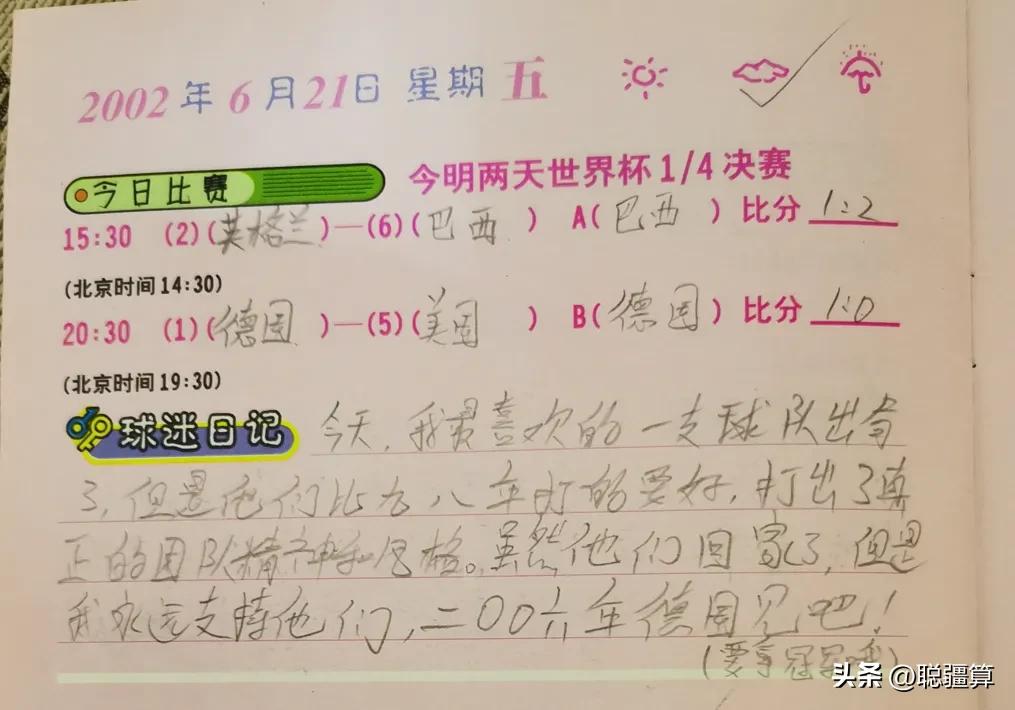 2002年6月21日 星期五
今日比赛 今明两天世界杯1/4决赛
15:30 (2)(英格兰)—(6)(巴西) A(巴西) 比分 1:2
(北京时间14:30)
20:30 (1)(德国)—(5)(美国) B(德国) 比分 1:0
(北京时间19:30)
球迷日记 今天,我最喜欢的一支球队出局
了,但是他们比九八年打的要好,打出了真
正的团队精神和风格。虽然他们回家了,但是
我永远支持他们,二00六年德国见吧!
(要拿冠军哦)
头条 @聪疆算